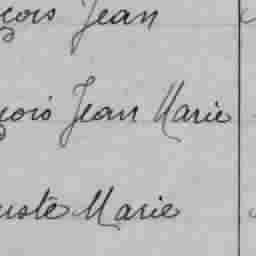 çois Jean
çois Jean Marie
uste Marie